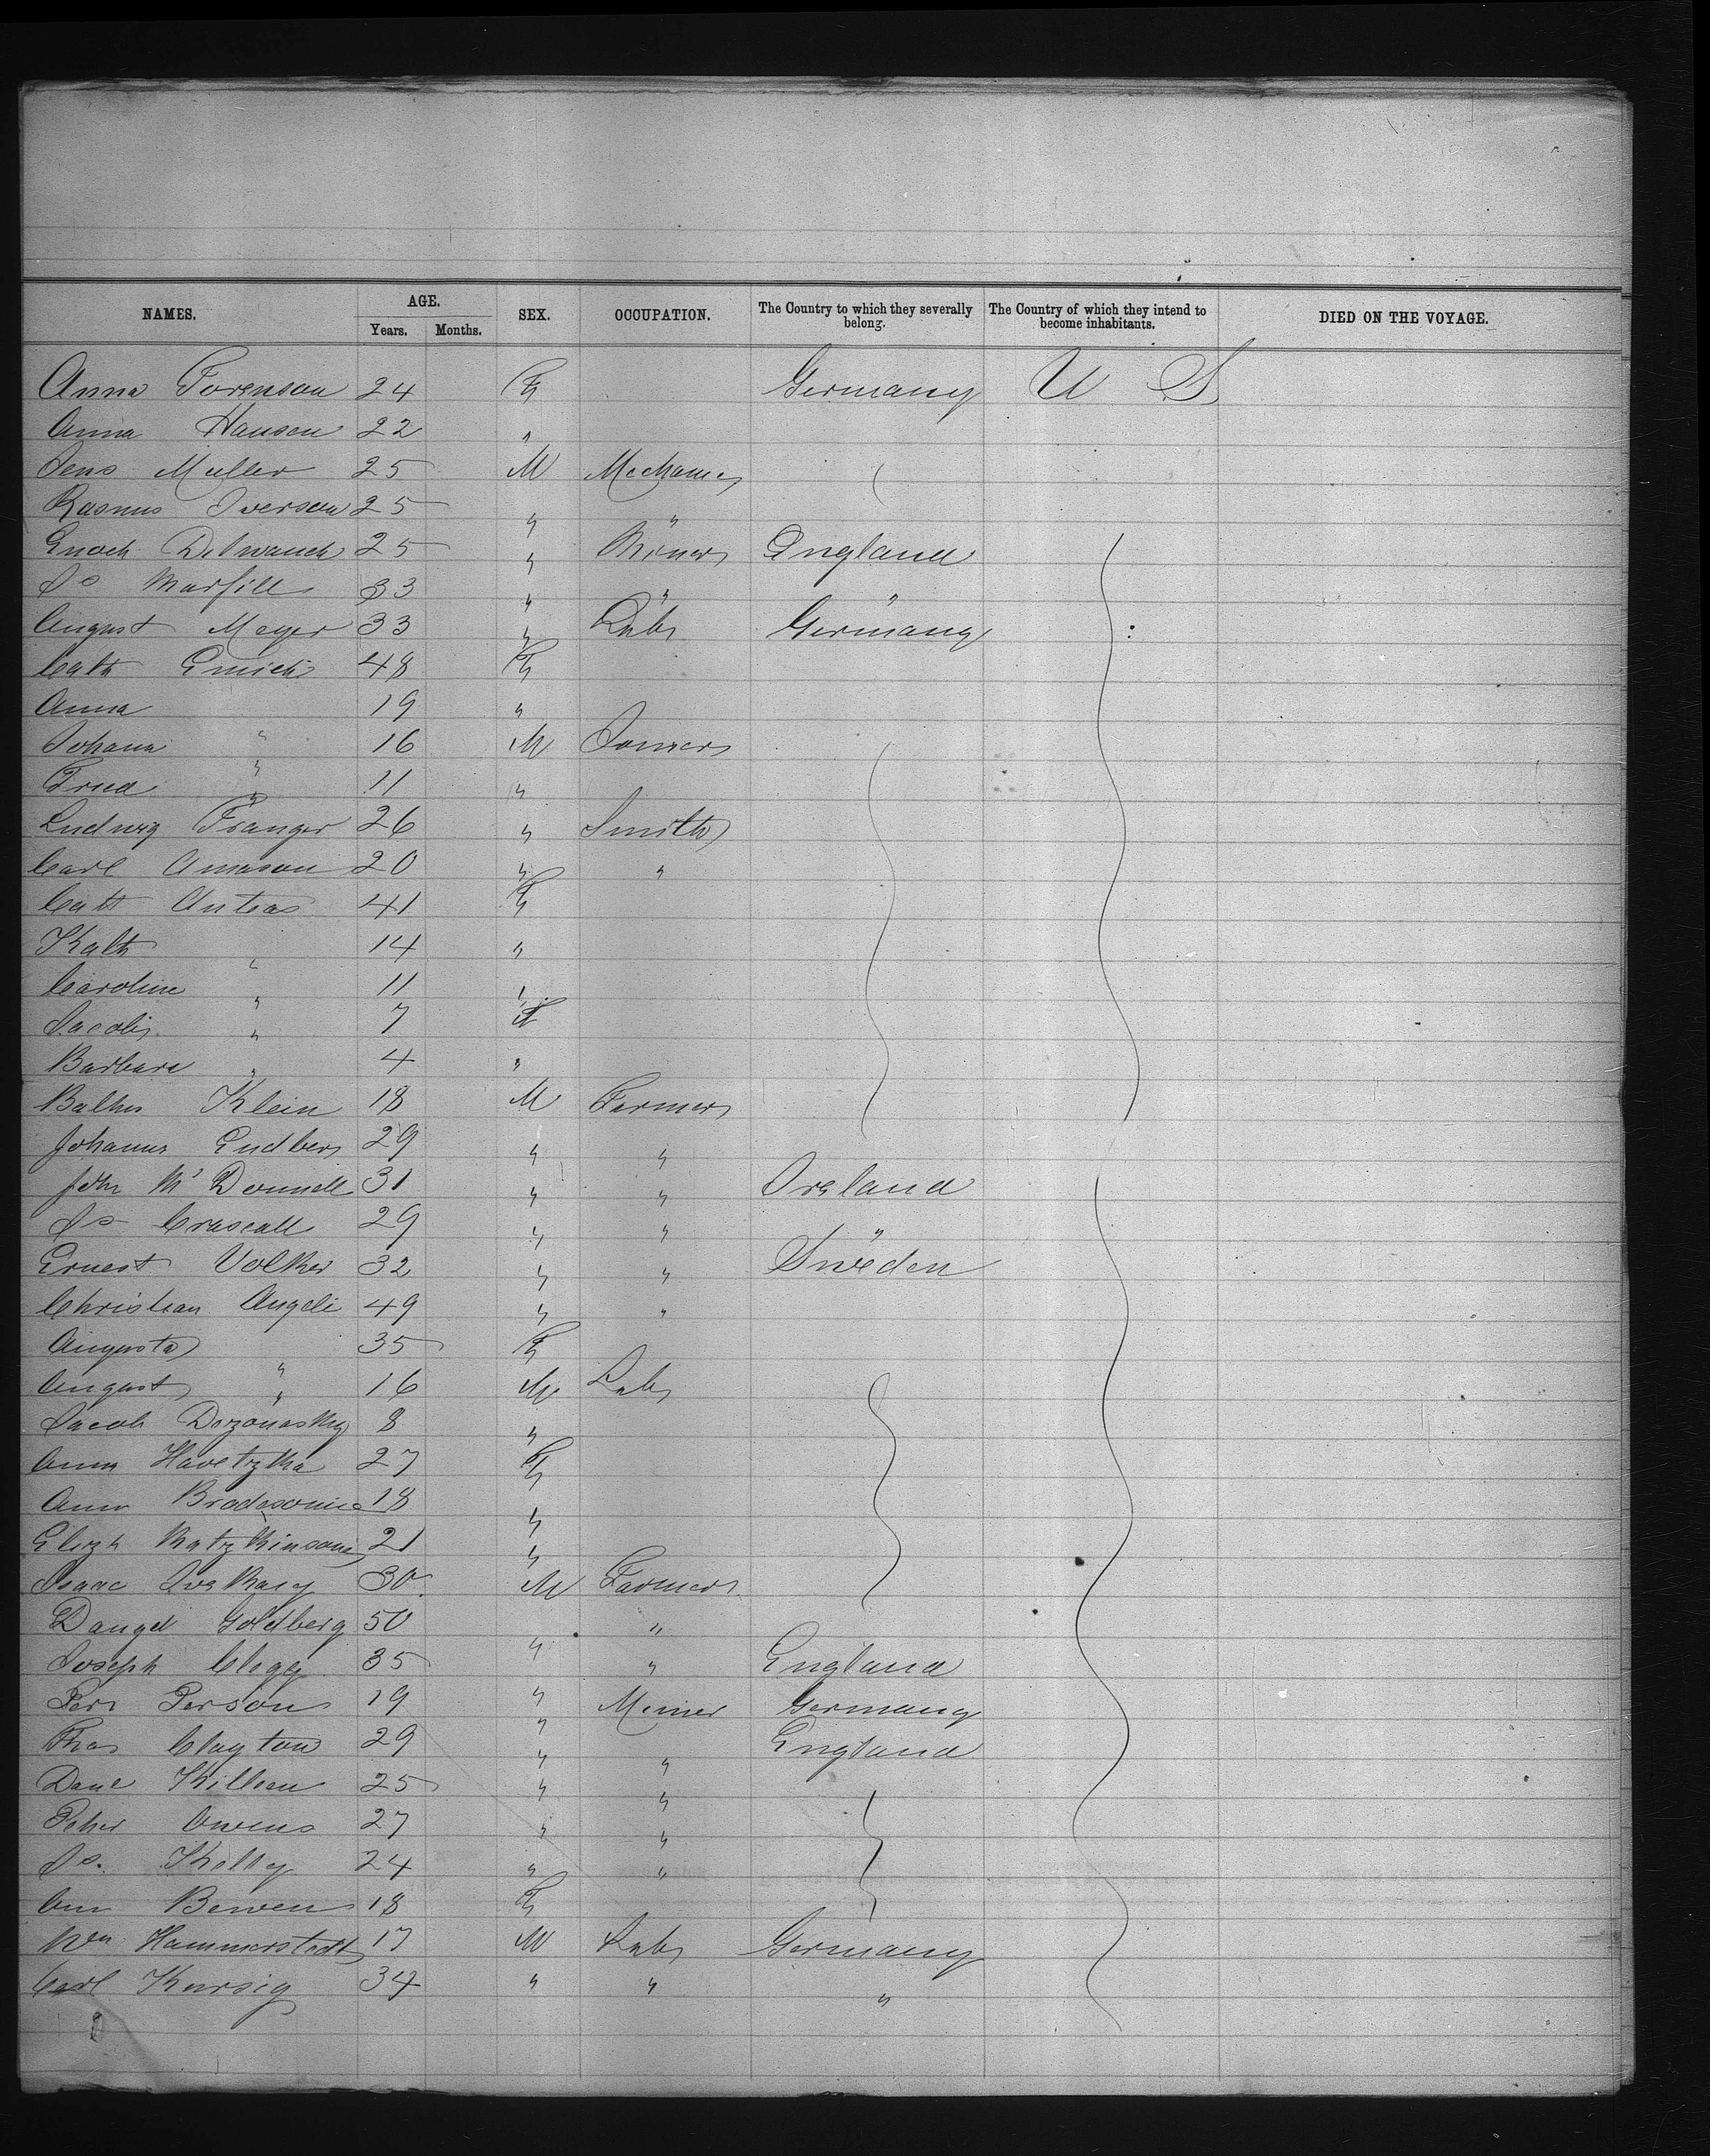 NAMES. AGE. SEX. OCCUPATION. The Country to which they severally belong. The Country of which they intend to become inhabitants. DIED ON THE VOYAGE.
Years. Months.
Anna Sorenson 24 F Germany U S
Anna Hansen 22 "
Jens Muller 25 M Mechanic
Rasmus Iverson 25 " "
Enoch 25 " Miner England
Jo 33 " " "
August Meyer 33 " Lab Germany
Cath Emich 48 F
Anna 19 "
Johann " 16 M Joiner
Fried " 11 "
Ludwig Franger 26 " Smith
Carl Amason 20 " "
Cath Anteas 41 F
Kath 14 "
Caroline " 11 "
Jacob " 7
Barbara " 4 "
Balthes Klein 18 M Farmer
Johannes Endbers 29 " "
John Mc Donnell 31 " " Ireland
Jo 29 " " "
Ernest Volker 32 " " Sweden
Christian Angeli 49 " "
Augusta 35 F
August " 16 M Lab
Jacob 8 "
Anna 27 F
Anna 18 "
Elizh 21 "
Isaac 30 M Farmer
Goldberg 50 "
Joseph Clegg 35 " " England
Per Person 19 " Miner Germany
Thos Clayton 29 " " England
Danl Killeen 25 " "
Peter Owens 27 " "
Jo. Kelly 24 " "
Ann Bewen 18 F
Wm Hammerstedt 17 M Lab Germany
Carl Kursig 34 " " "